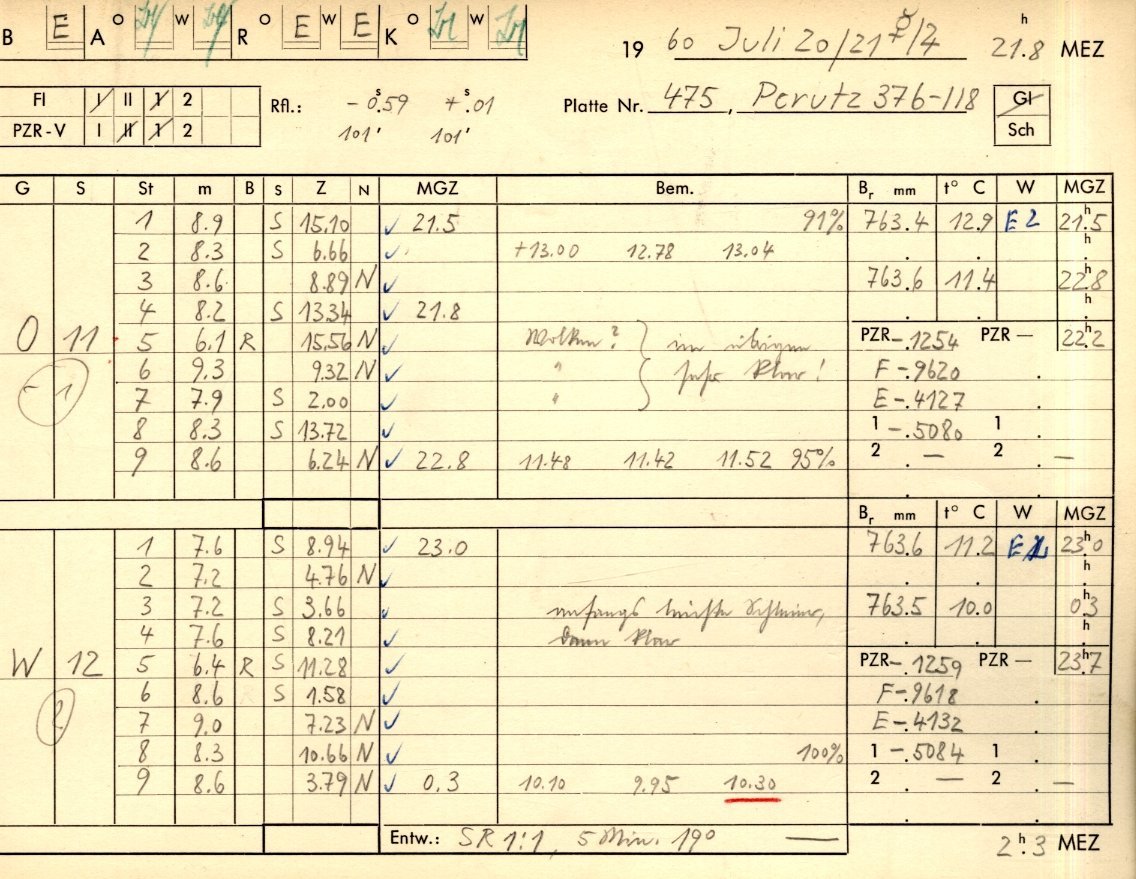 B E A O W R O E W E K O W
19 60 Juli 20/21 /4 21.8 h MEZ
FI I II 1 2
Rfl.: - 0.59 s + .01 s
Platte Nr. 475, Perutz 376-118
GI
PZR-V I II 1 2
101' 101'
Sch
G S St m B S Z N MGZ Bem. Br mm t° C W MGZ
1 8.9 S 15.10 ✓ 21.5 91% 763.4 12.9 E2 21.5 h
2 8.3 S 6.66 ✓ +13.00 12.78 13.04 h
3 8.6 8.89 N ✓ 763.6 11.4 22.8
4 8.2 S 13.34 ✓ 21.8 h
O 11 5 6.1 R 15.56 N ✓ Wolken? im übrigen PZR-.1254 PZR — 22.2 h
6 9.3 9.32 N ✓ " sehr klar! F-.9620
-1 7 7.9 S 2.00 ✓ " E-.4127
8 8.3 S 13.72 ✓ 1 -.5080 1
9 8.6 6.24 N ✓ 22.8 11.48 11.42 11.52 95% 2 — 2 —
Br mm t° C W MGZ
1 7.6 S 8.94 ✓ 23.0 763.6 11.2 23.0 h
2 7.2 4.76 N ✓ h
3 7.2 S 3.66 ✓ anfangs leichte Schleier, 763.5 10.0 0.3 h
4 7.6 S 8.21 ✓ dann klar h
W 12 5 6.4 R S 11.28 ✓ PZR-.1259 PZR — 23.7 h
6 8.6 S 1.58 ✓ F-.9618
7 9.0 7.23 N ✓ E-.4132
8 8.3 10.66 N ✓ 100% 1 -.5084 1
9 8.6 3.79 N ✓ 0.3 10.10 9.95 10.30 2 — 2 —
Entw.: SR 1:1, 5 Min. 19° — 2.3 h MEZ